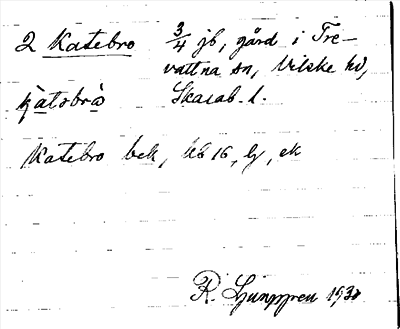 2 Katebro 3/4 jb, gård i Tre-
vattna sn, Vilske hd,
kȧtobrȯ Skarab. l.
Katebro bek, kb 16, lj, ek
R. Ljunggren 1930